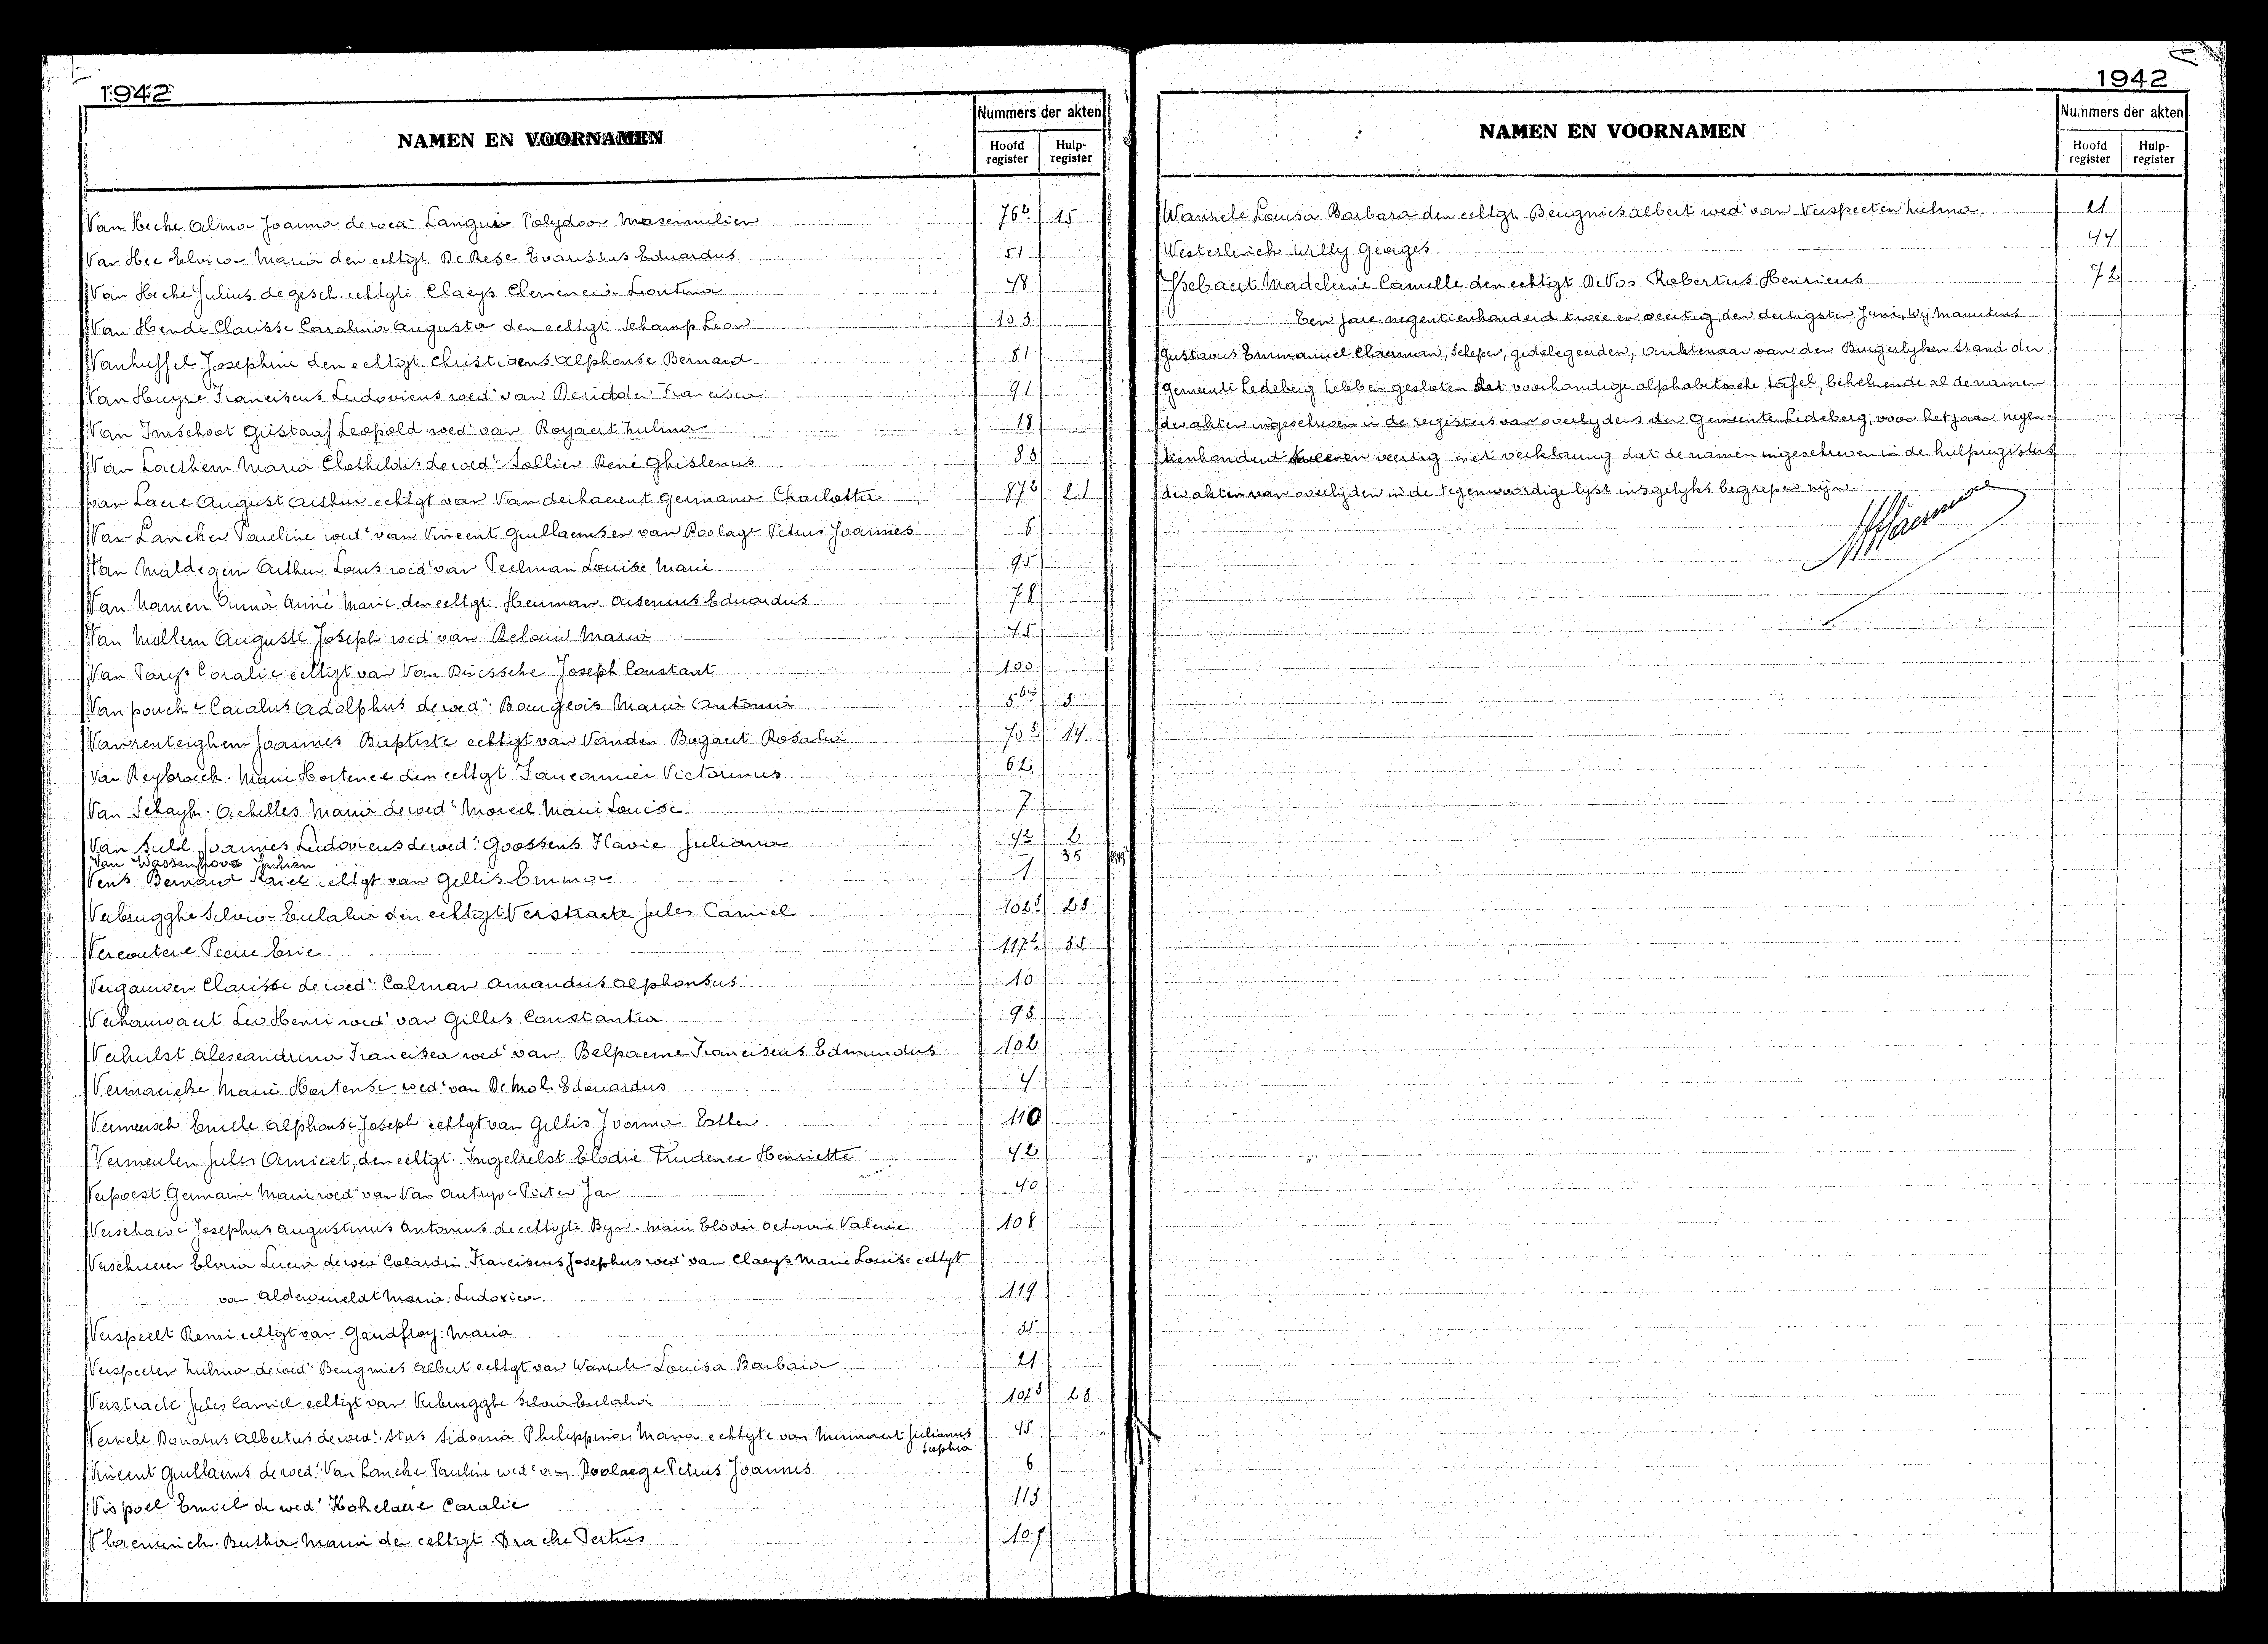 1942
NAMEN EN VOORNAMEN
Nummers der akten
Hoofd register
Hulp-register
Van Hecke Alma Joanna de wed. Langui Polydoor Maximilien 76b 15
Van Hee Elvira Maria den echtgt De Rese Evaristus Eduardus 51
Van Hecke Julius de gesch. echtgte Claeys Clemencia Leontina 48
Van Hende Clarisse Carolina Augusta den echtgt Schamp Leon 103
Vanhuffel Josephine den echtgt. Christiaens Alphonse Bernard 81
Van Huyse Franciscus Ludovicus wed. van Deridder Francisca 91
Van Imschoot Gustaaf Leopold wed. van Royaert Zulma 18
Van Laethem Maria Clothildis de wed. Sollier René Ghislenus 83
Van Laere August Arthur echtgt van Van derhaevent Germana Charlotte 87b 21
Van Lancker Pauline wed. van Vincent Guillaems en van Poolage Petrus Joannes 6
Van Maldegem Arthur Louis wed. van Peelman Louise Marie 95
Van Namen Anna Aimé Marie den echtgt Herman Arsenius Eduardus 78
Van Mollem Auguste Joseph wed van Maria 45
Van Parys Coralie echtgt van Van Driessche Joseph Constant 100
Van poucke Carolus Adolphus de wed. Bourgeois Maria Antonia 5bis 3
Vanrenterghem Joannes Baptiste echtgt van Vanden Bogaert Rosalia 70 14
Van Reybroeck Marie Hortence den echtgt Victorinus 62
Van Schayk Achilles Maria de wed. Moreel Marie Louise 7
Van Suld Joannes Ludovicus de wed. Goossens Flavie Juliana 42 2
Van Wassenhove Julien 35
Vens Bernard Karel echtgt van Gillis Emma 1
Verbrugghe Silvia Eulalia den echtgt Verstraete Jules Camiel 102 23
Vercoutere Pierre Eric 117
Vergauwen Clarisse de wed. Colman Amandus Alphonsus 10
Verhauwaert Leo Henri wed. van Gillis Constantia 93
Verhulst Alexandrina Francisca wed. van Belpaeme Franciscus Edmundus 102
Vermaercke Marie Hortense wed. van De Mol Edouardus 4
Vermeersch Emile Alphonse Joseph echtgt van Gillis Joanna Esther 110
Vermeulen Jules Amicet, den echtgt. Ingelrelst Elodie Prudence Henriette 42
Verpoest Germaine Marie wed. van Van Autryve Pieter Jan 40
Verschaeve Josephus Augustinus Antonius de echtgte Byn Marie Elodie Octavie Valerie 108
Verschueren Elvira Lucia de wed Colardin Franciscus Josephus wed. van Claeys Marie Louise echtgt
van Alderweireldt Maria Ludovica 119
Verspeelt Remi echtgt van Gaudfroy Maria 35
Verspeeten Zulma de wed. Beugnies Albert echtgt van Wanzele Louisa Barbara 21
Verstraete Jules Camiel echtgt van Verbrugghe Silvia Eulalia 102 23
Verzele Donatus Albertus de wed. Stas Sidonia Philippina Maria echtgte van Minnaert Julianus 45
Sophia
Vincent Guillaems de wed. Van Lancke Pauline wed. van Poolaege Petrus Joannes 6
Vispoel Emiel de wed. Kokelaere Coralie 113
Vlaeminck Bertha Maria den echtgt. Dracke Petrus 107
1942
NAMEN EN VOORNAMEN
Nummers der akten
Hoofd register
Hulp-register
Wanzele Louisa Barbara den echtgt Beugnies Albert wed. van Verspeeten Zulma 21
Westerlinck Willy Georges 44
Ysebaert Madeleine Camille den echtgt De Vos Robertus Henricus 72
Ten jare negentienhonderd twee en veertig, den dertigsten Juni, Wij Mauritius
Gustavus Emmanuel Chaerman, Schepen, gedelegeerden, Ambtenaar van den Burgerlyken Stand der
Gemeente Ledeberg hebben gesloten dat voorhandige alphabetische tafel, behelzende al de namen
der akten ingeschreven in de registers van overlydens der Gemeente Ledeberg, voor het jaar negen-
tienhonderd twee en veertig met verklaring dat de namen ingeschreven in de hulpregisters
der akten van overlijden in de tegenwoordige lyst insgelyks begrepen zijn.